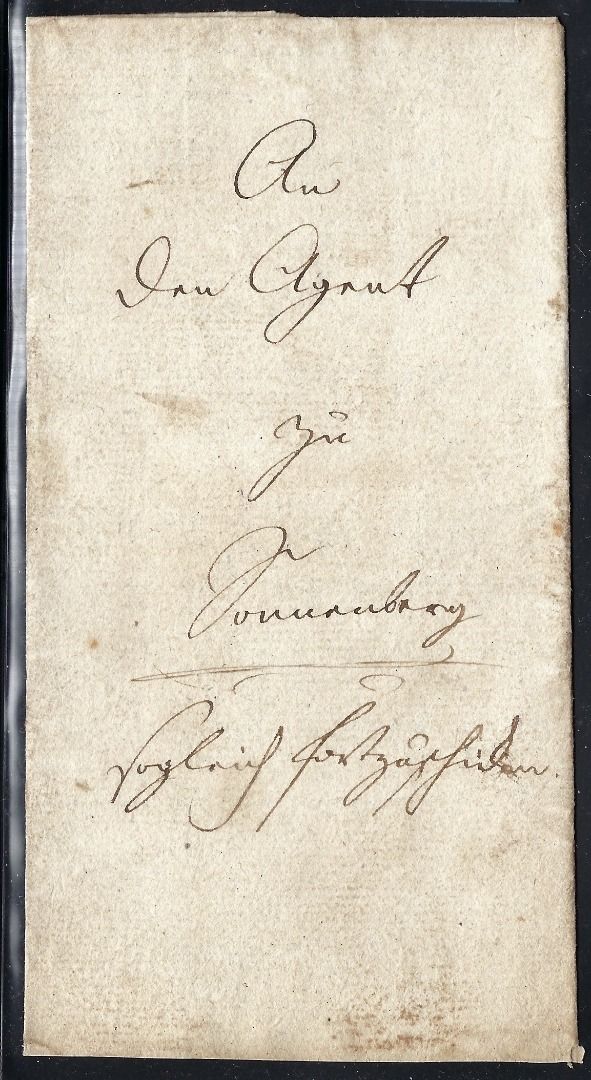 An
den Agent
zu
Sonnenberg
sogleich fortzuschicken.